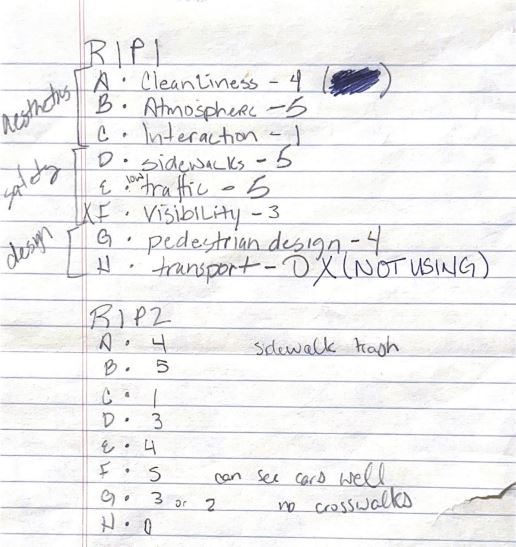 R1P1
aesthetics
A · Cleanliness - 4 ( )
B · Atmosphere - 5
C · Interaction - 1
safety
D · sidewalks - 5
E · low traffic - 5
X F · Visibility - 3
design
G · pedestrian design - 4
H · transport - 0 X (NOT USING)
R1P2
A · 4 sidewalk trash
B · 5
C · 1
D · 3
E · 4
F · 5 can see cars well
G · 3 or 2 no crosswalks
H · 0